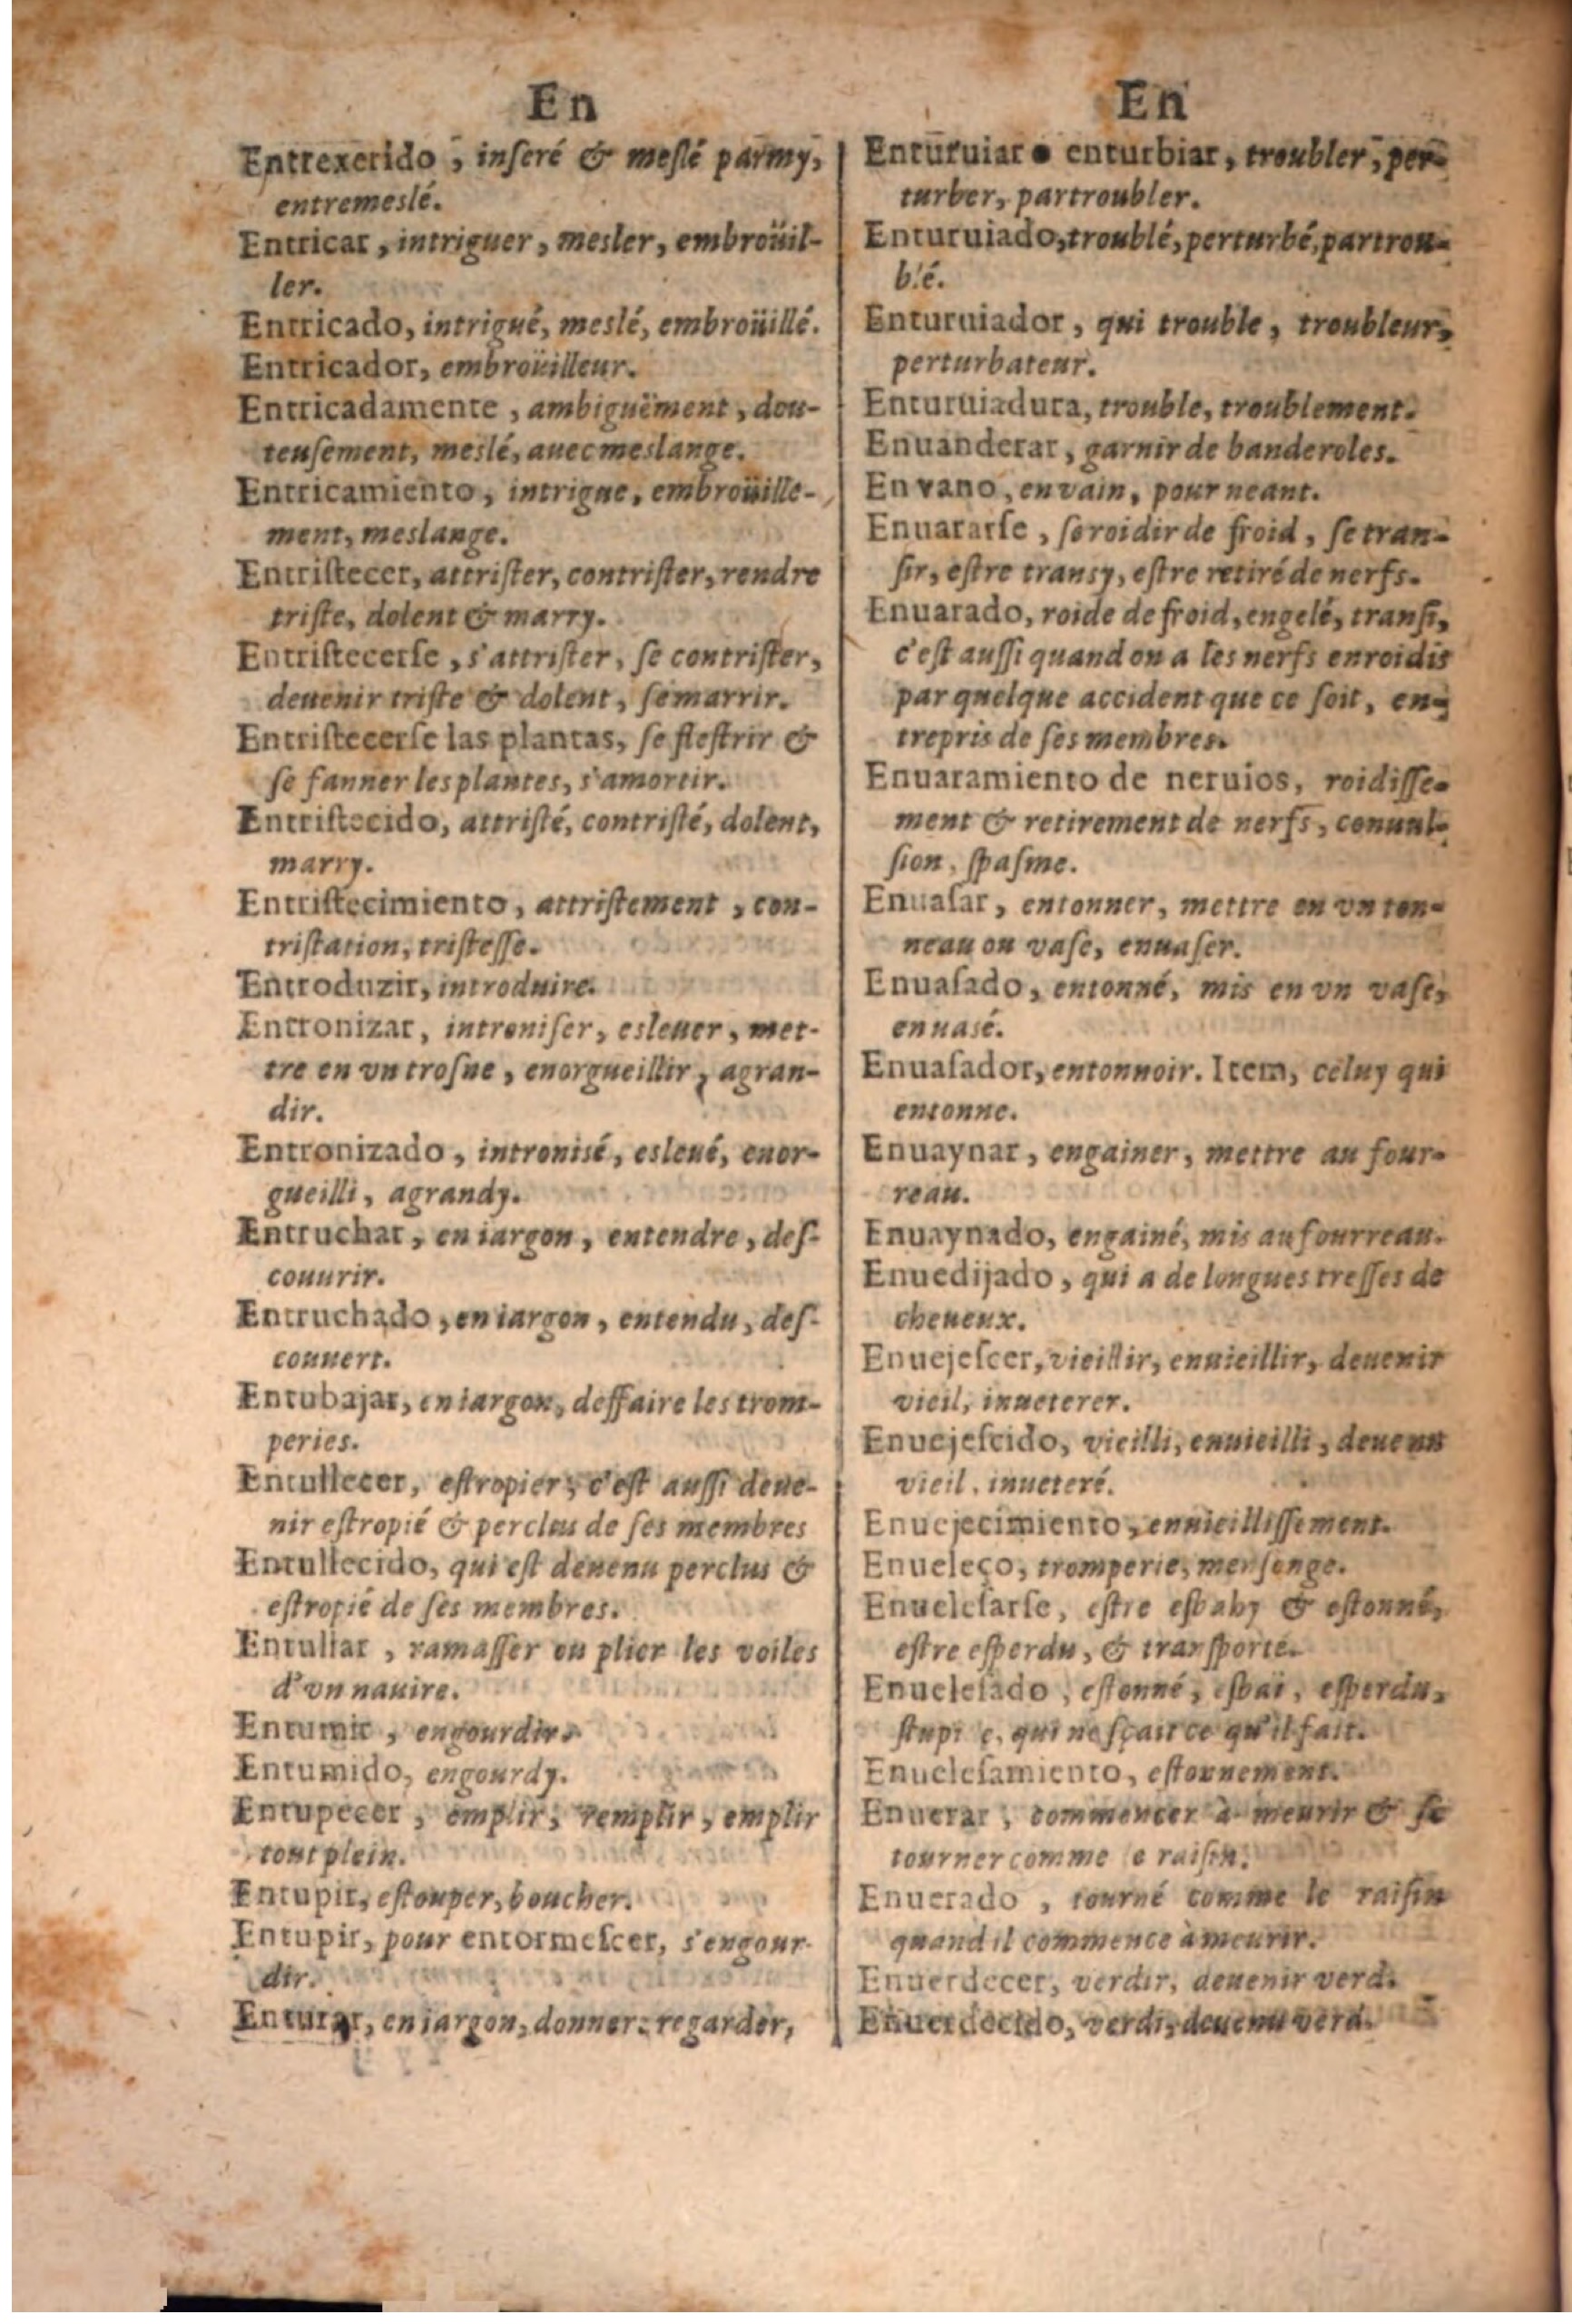 En
Entrexerido, inseré & meslé parmy,
entremeslé.
Entricar, intriguer, mesler, embroüil-
ler.
Entricado, intrigué, meslé, embroüillé.
Entricador, embroüilleur.
Entricadamente, ambiguëment, dou-
teusement, meslé, auec meslange.
Entricamiento, intrigue, embroüille-
ment, meslange.
Entriſtecer, attriſter, contriſter, rendre
triſte, dolent & marry.
Entriſtecerſe, s'attriſter, ſe contriſter,
deuenir triſte & dolent, ſe marrir.
Entriſtecerſe las plantas, ſe fleſtrir &
ſe fanner les plantes, s'amortir.
Entriſtecido, attriſté, contriſté, dolent,
marry.
Entriſtecimiento, attriſtement, con-
triſtation, triſteſſe.
Entroduzir, introduire.
Entronizar, introniſer, esleuer, met-
tre en vn troſne, enorgueillir, agran-
dir.
Entronizado, intronisé, esleué, enor-
gueilli, agrandy.
Entruchar, en iargon, entendre, deſ-
couurir.
Entruchado, en iargon, entendu, deſ-
couuert.
Entubajar, en iargon, deffaire les trom-
peries.
Entullecer, eſtropier, c'eſt auſſi deue-
nir eſtropié & perclus de ſes membres
Entullecido, qui eſt deuenu perclus &
eſtropié de ſes membres.
Entullar, ramaſſer ou plier les voiles
d'vn nauire.
Entumir, engourdir.
Entumido, engourdy.
Entupecer, emplir, remplir, emplir
tout plein.
Entupir, eſtouper, boucher.
Entupir, pour entormeſcer, s'engour-
dir.
Enturar, en iargon, donner: regarder,
En
Enturuiar o enturbiar, troubler, per-
turber, partroubler.
Enturuiado, troublé, perturbé, partrou-
blé.
Enturuiador, qui trouble, troubleur,
perturbateur.
Enturuiadura, trouble, troublement.
Enuanderar, garnir de banderoles.
En vano, en vain, pour neant.
Enuararſe, ſe roidir de froid, ſe tran-
ſir, eſtre transy, eſtre retiré de nerfs.
Enuarado, roide de froid, engelé, tranſi,
c'eſt auſſi quand on a les nerfs enroidis
par quelque accident que ce ſoit, en-
trepris de ſes membres.
Enuaramiento de neruios, roidiſſe-
ment & retirement de nerfs, conuul-
ſion, ſpaſme.
Enuaſar, entonner, mettre en vn ton-
neau ou vaſe, enuaſer.
Enuaſado, entonné, mis en vn vaſe,
enuasé.
Enuaſador, entonnoir. Item, celuy qui
entonne.
Enuaynar, engainer, mettre au four-
reau.
Enuaynado, engainé, mis au fourreau.
Enuedijado, qui a de longues treſſes de
cheueux.
Enuejeſcer, vieillir, enuieillir, deuenir
vieil, inueterer.
Enuejeſcido, vieilli, enuieilli, deuenu
vieil, inueteré.
Enuejecimiento, enuieilliſſement.
Enueleço, tromperie, menſonge.
Enueleſarſe, eſtre eſbahy & eſtonné,
eſtre eſperdu, & tranſporté.
Enueleſado, eſtonné, eſbaï, eſperdu,
ſtupide, qui ne ſçait ce qu'il fait.
Enueleſamiento, eſtonnement.
Enuerar, commencer à meurir & ſe
tourner comme le raiſin.
Enuerado, tourné comme le raiſin
quand il commence à meurir.
Enuerdecer, verdir, deuenir verd.
Enuerdecido, verdi, deuenu verd.